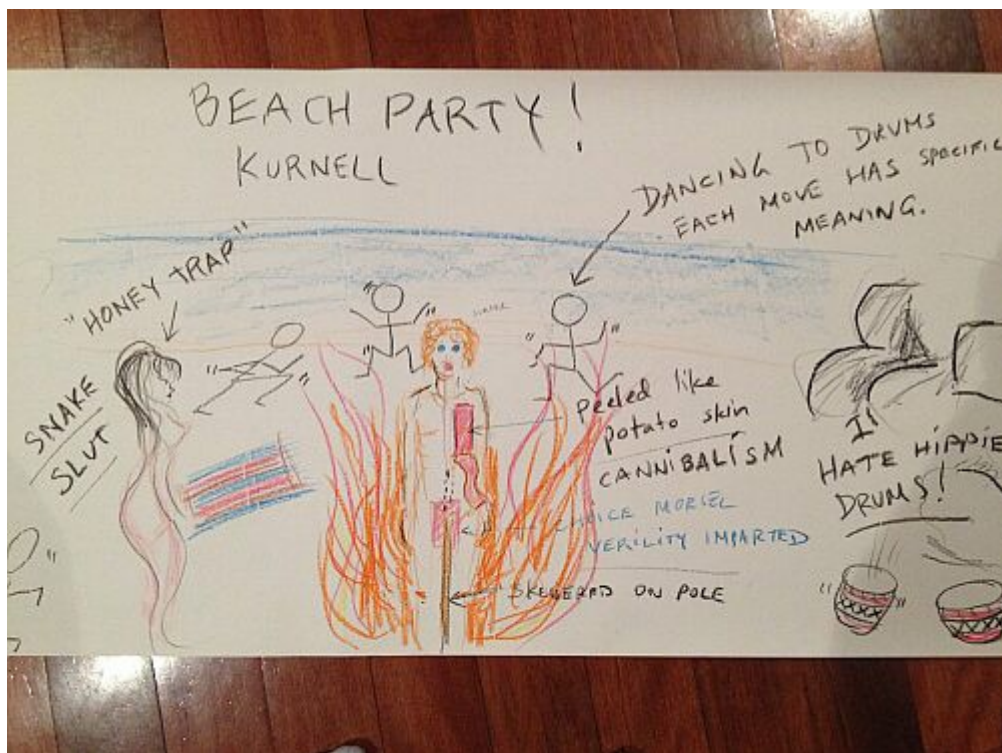 BEACH PARTY!
KURNELL
DANCING TO DRUMS
EACH MOVE HAS SPECIFIC
MEANING.
"HONEY TRAP"
SNAKE
SLUT
peeled like
potato skin
CANNIBALISM
CHOICE MORSEL
VERILITY IMPARTED
SKEWERED ON POLE
I
HATE HIPPIE
DRUMS!